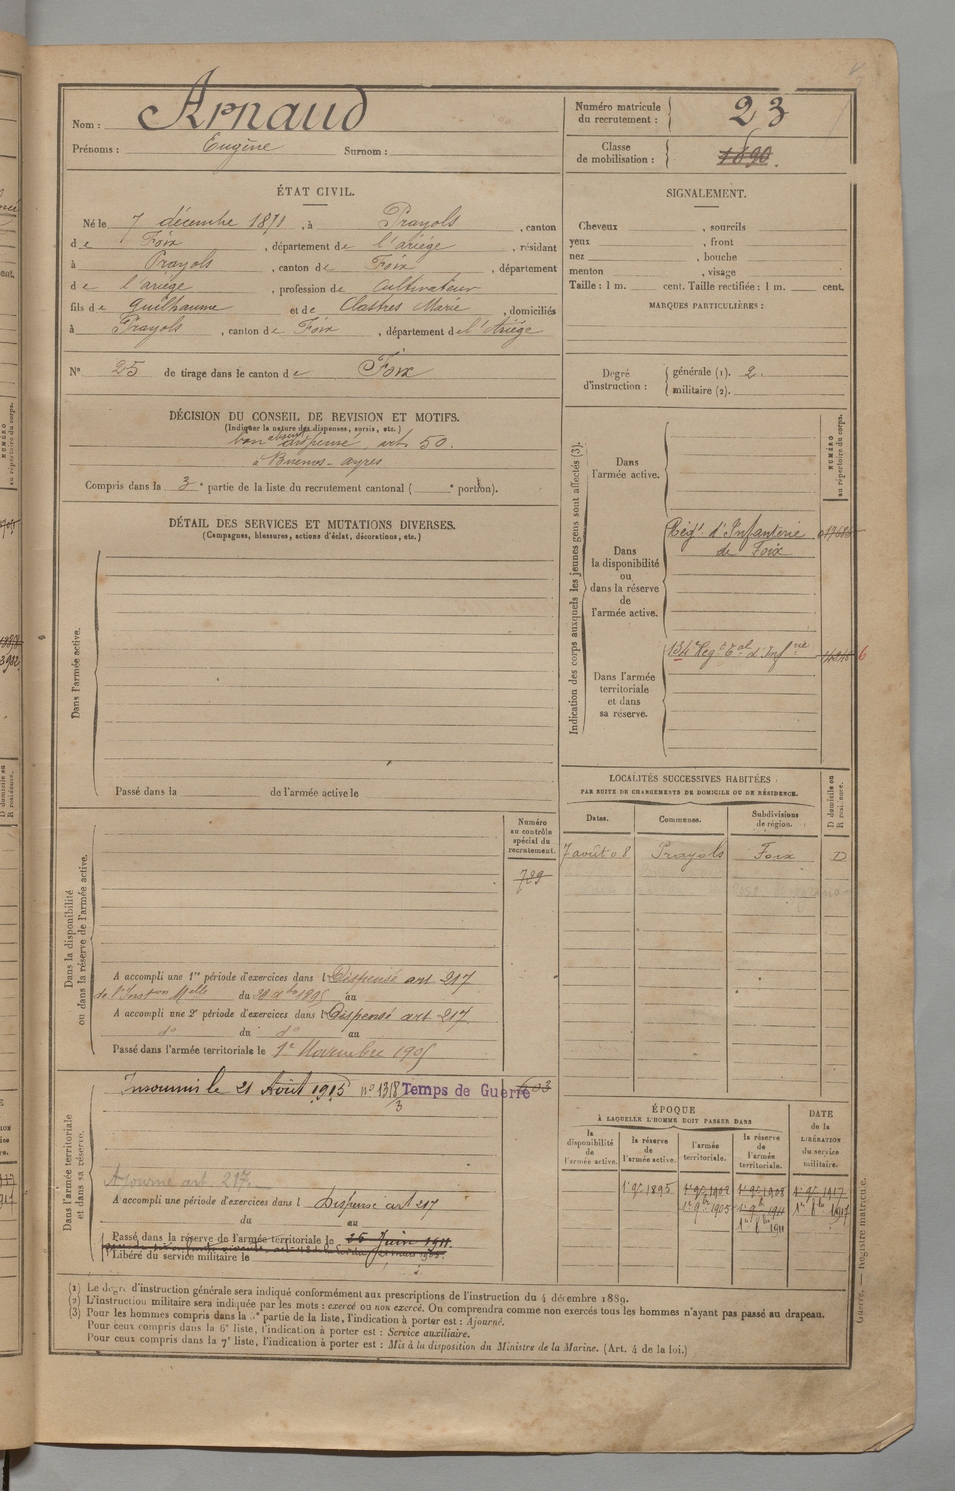 Nom : Arnaud
Prénoms : Eugène Surnom :
Numéro matricule du recrutement : 23
Classe de mobilisation : 1890.
ÉTAT CIVIL.
Né le 7 décembre 1871, à Prayols, canton
de Foix, département de l'ariège, résidant
à Prayols, canton de Foix, département
de l'ariège, profession de Cultivateur
fils de Guilhaume et de Clastres Marie, domiciliés
à Prayols, canton de Foix, département de l'Ariège
N° 25 de tirage dans le canton de Foix
SIGNALEMENT.
Cheveux , sourcils
yeux , front
nez , bouche
menton , visage
Taille : 1 m. cent. Taille rectifiée : 1 m. cent.
MARQUES PARTICULIÈRES :
Degré d'instruction :
générale (1). 2.
militaire (2).
DÉCISION DU CONSEIL DE REVISION ET MOTIFS.
(Indiquer la nature des dispenses, sursis, etc.)
bon absent dispensé art 50.
à Buenos-ayres
Compris dans la 3e partie de la liste du recrutement cantonal ( e portion).
DÉTAIL DES SERVICES ET MUTATIONS DIVERSES.
(Campagnes, blessures, actions d'éclat, décorations, etc.)
Dans l'armée active.
Passé dans la de l'armée active le
Indication des corps auxquels les jeunes gens sont affectés (3).
NUMÉRO au répertoire du corps.
Dans l'armée active.
Dans la disponibilité ou dans la réserve de l'armée active.
Régt. d'Infanterie
de Foix
Dans l'armée territoriale et dans sa réserve.
134e Regt Tal d'Infrie
6
LOCALITÉS SUCCESSIVES HABITÉES
PAR SUITE DE CHANGEMENTS DE DOMICILE OU DE RÉSIDENCE.
D domicile ou R résidence.
Dates. Communes. Subdivisions de région.
7 août 08 Prayols Foix D
Dans la disponibilité ou dans la réserve de l'armée active.
Numéro au contrôle spécial du recrutement.
789
A accompli une 1re période d'exercices dans l Dispensé art 217
de l'Inston Melle du 28 Xbre 1895 au
A accompli une 2e période d'exercices dans l Dispensé art 217
do du do au
Passé dans l'armée territoriale le 1er Novembre 1905
Dans l'armée territoriale et dans sa réserve.
Insoumis le 21 Août 1915 no 1318/3 Temps de Guerre
Ajourné art. 217.
A accompli une période d'exercices dans l Dispensé art 217
du au
Passé dans la réserve de l'armée territoriale le 26 Juin 1911.
Libéré du service militaire le
ÉPOQUE
À LAQUELLE L'HOMME DOIT PASSER DANS
DATE de la LIBÉRATION du service militaire.
la disponibilité de l'armée active.
la réserve de l'armée active.
l'armée territoriale.
la réserve de l'armée territoriale.
1er 9bre 1895 1er 9bre 1902 1er 9bre 1908 1er 9bre 1917
1er 9bre 1905 1er 9bre 1911
(1) Le degré d'instruction générale sera indiqué conformément aux prescriptions de l'instruction du 4 décembre 1889.
(2) L'instruction militaire sera indiquée par les mots : exercé ou non exercé. On comprendra comme non exercés tous les hommes n'ayant pas passé au drapeau.
(3) Pour les hommes compris dans la 5e partie de la liste, l'indication à porter est : Ajourné.
Pour ceux compris dans la 6e liste, l'indication à porter est : Service auxiliaire.
Pour ceux compris dans la 7e liste, l'indication à porter est : Mis à la disposition du Ministre de la Marine. (Art. 4 de la loi.)
Guerre. — Registre matricule.